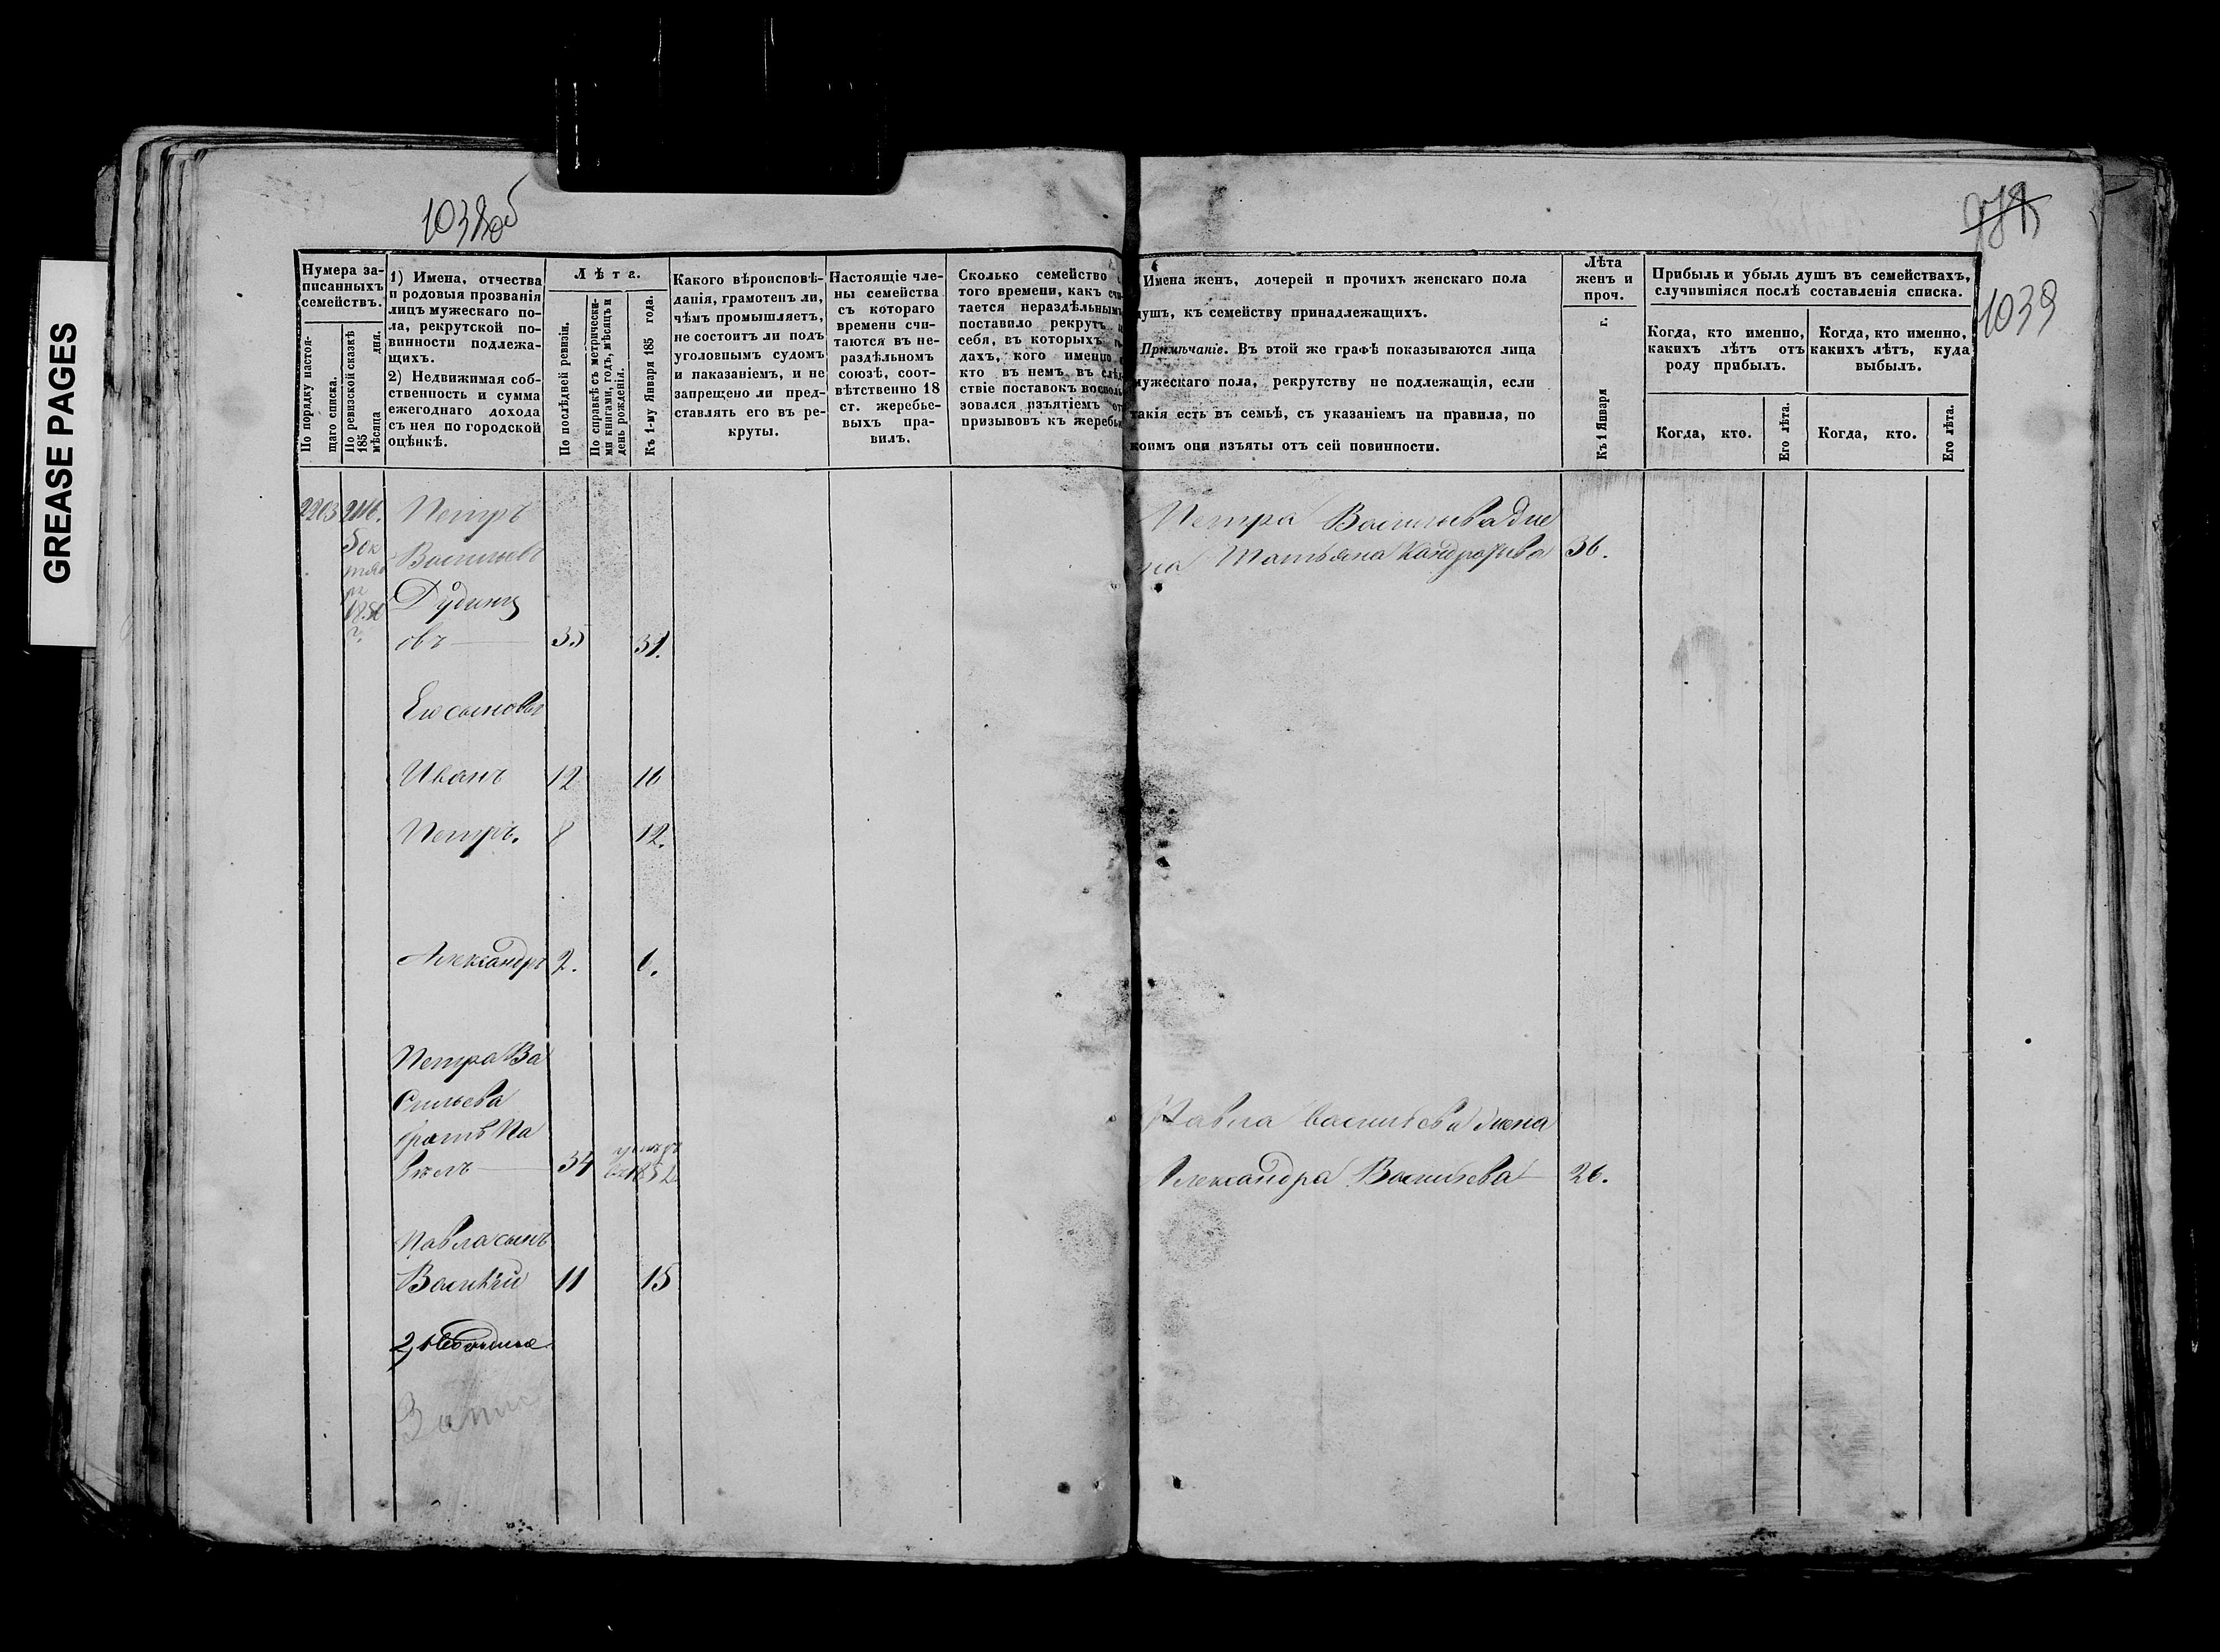 GREASE PAGES
1038об
1039
Нумера записанныхъ семействъ.
По порядку настоящаго списка.
По ревизской сказкѣ 185 мѣсяца дня.
1) Имена, отчества
и родовыя прозванія
лицъ мужескаго по-
ла, рекрутской по-
винности подлежа-
щихъ.
2) Недвижимая соб-
ственность и сумма
ежегоднаго дохода
съ нея по городской
оцѣнкѣ.
Лѣта.
По послѣдней ревизіи.
По справкѣ съ метрически-
ми книгами, годъ, мѣсяцъ и
день рожденія.
Къ 1-му Января 185 года.
Какого вѣроисповѣ-
данія, грамотенъ ли,
чѣмъ промышляетъ,
не состоитъ ли подъ
уголовнымъ судомъ
и наказаніемъ, и не
запрещено ли пред-
ставлять его въ ре-
круты.
Настоящіе чле-
ны семейства
съ котораго
времени счи-
таются въ не-
раздѣльномъ
союзѣ, соот-
вѣтственно 18
ст. жеребье-
выхъ пра-
вилъ.
Сколько семейство
того времени, какъ
тается нераздѣльнымъ
поставило рекрутъ
себя, въ которыхъ
дахъ, кого именно
кто въ немъ въ
ствіе поставокъ
зовался изъятіемъ
призывовъ къ
Имена женъ, дочерей и прочихъ женскаго пола
душъ, къ семейству принадлежащихъ.
Примѣчаніе. Въ этой же графѣ показываются лица
мужескаго пола, рекрутству не подлежащія, если
такія есть въ семьѣ, съ указаніемъ на правила, по
коимъ они изъяты отъ сей повинности.
Лѣта
женъ и
проч.
Къ 1 Января г.
Прибыль и убыль душъ въ семействахъ,
случившіяся послѣ составленія списка.
Когда, кто именно,
какихъ лѣтъ отъ
роду прибылъ.
Когда, кто именно,
какихъ лѣтъ, куда
выбылъ.
Когда, кто.
Его лѣта.
Когда, кто.
Его лѣта.
2203
5 ок
тяб
ря
г.
Петръ
Васильевъ
Дудинц
овъ 35
Его сыновья
Иванъ 12 16
Петръ. 8 12.
Александръ 2. 6.
Петра Ва
сильева
братъ Па
велъ 34
Павла сынъ
Василій 11 15
Петра Васильева Же
на Татьяна 36.
Павла Васильева Жена
Александра Васильева 26.